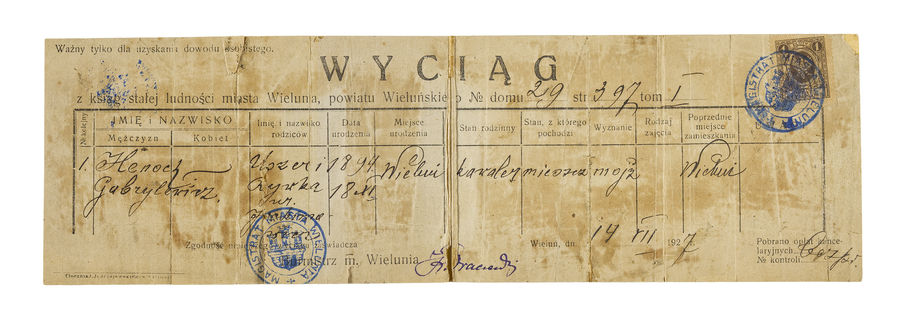 Ważny tylko dla uzyskania dowodu osobistego.
WYCIĄG
z ksiąg stałej ludności miasta Wielunia, powiatu Wieluńskiego № domu 29 str 397 tom I
№ kolejny
IMIĘ i NAZWISKO
Mężczyzn
Kobiet
Imię i nazwisko rodziców
Data urodzenia
Miejsce urodzenia
Stan rodzinny
Stan, z którego pochodzi
Wyznanie
Rodzaj zajęcia
Poprzednie miejsce zamieszkania
1. Henoch Uszer i 1894 Wieluń kawaler mieszcz mojż Wieluń
Gabrylowicz. Cyrka 18
Zgodność
Wieluń, dn. 14 VII 1927
Burmistrz m. Wielunia
Pobrano opłat kancelaryjnych
№ kontroli
MAGISTRAT MIASTA WIELUNIA
MAGISTRAT MIASTA WIELUNIA
1 1